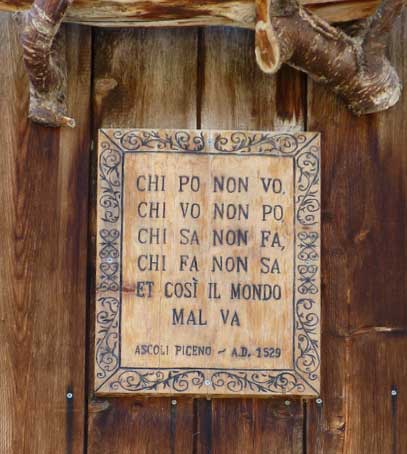 CHI PO NON VO,
CHI VO NON PO
CHI SA NON FA,
CHI FA NON SA
ET COSÌ IL MONDO
MAL VA
ASCOLI PICENO ~ A.D. 1529